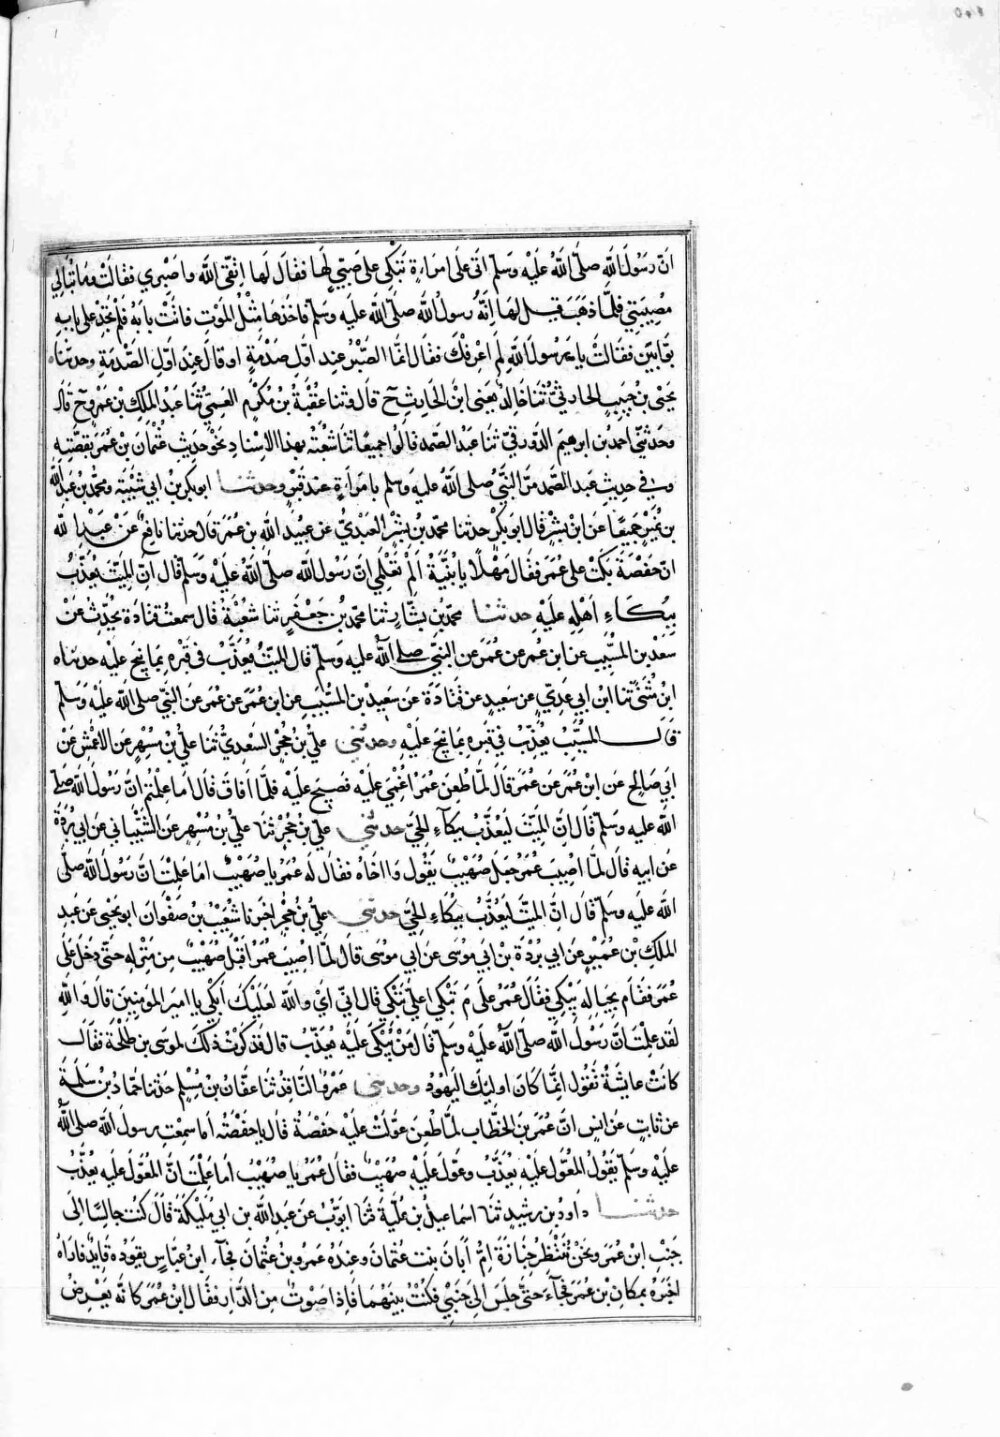 انّ رسول الله صلى الله عليه وسلم اتى على امراة تبكي على صبيّ لها فقال لها اتّقى الله واصبري فقالت وما تبالي
مصيبتي فلمّا ذهب قيل لها انّه رسول الله صلى الله عليه وسلم فاخذها مثل الموت فاتت بابه فلم تجد على بابه
بوّابين فقالت يا رسول الله لم اعرفك فقال انّما الصّبر عند اوّل صدمة او قال عند اوّل الصّدمة وحدثناه
يحيى بن حبيب الحارثيّ ثنا خالد يعنى ابن الحارث ح قال وثنا عقبة بن مكرم العمّي ثنا عبد الملك بن عمرو ح قال
وحدثني احمد بن ابرهيم الدّورقيّ ثنا عبد الصّمد قالوا جميعا ثنا شعبة بهذا الاسناد نحو حديث عثمان بن عمر بقصّته
وفي حديث عبد الصّمد مرّ النبيّ صلى الله عليه وسلم بامراة عند قبر وحدثنا ابو بكر بن ابي شيبة ومحمد بن عبد الله
بن نمير جميعا عن ابن بشر قال ابو بكر حدثنا محمّد بن بشر العبديّ عن عبيد الله بن عمر قال حدثنا نافع عن عبد الله
انّ حفصة بكت على عمر فقال مهلا يا بنيّة الم تعلمي انّ رسول الله صلى الله عليه وسلم قال انّ الميّت يعذّب
ببكاء اهله عليه حدثنا محمد بن بشّار ثنا محمد بن جعفر ثنا شعبة قال سمعت قتادة يحدّث عن
سعد بن المسّيب عن ابن عمر عن عمر عن النبيّ صلى الله عليه وسلم قال الميّت يعذّب في قبره بما نيح عليه حدثناه
ابن مثنى ثنا ابن ابي عديّ عن سعيد عن قتادة عن سعيد بن المسّيب عن ابن عمر عن عمر عن النّبيّ صلى الله عليه وسلم
قال الميّت يعذّب في قبره بما نيح عليه وحدثني عليّ بن حجر السّعديّ ثنا عليّ بن مسهر عن الاعمش عن
ابي صالح عن ابن عمر عن عمر قال لمّا طعن عمر اغمي عليه فصيح عليه فلمّا افاق قال اما علمتم انّ رسول الله صلى
الله عليه وسلم قال انّ الميّت ليعذّب ببكآء الحيّ حدثني عليّ بن حجر ثنا عليّ بن مسهر عن الشّيباني عن ابي بردة
عن ابيه قال لمّا اصيب عمر جعل صهيب يقول وا اخاه فقال له عمر يا صهيب اما علمت انّ رسول الله صلى
الله عليه وسلم قال انّ الميّت ليعذّب ببكاء الحيّ حدثني عليّ بن حجر اخبرنا شعيب بن صفوان ابو يحيى عن عبد
الملك بن عمير عن ابي بردة بن ابي موسى عن ابي موسى قال لمّا اصيب عمر اقبل صهيب من منزله حتّى دخل على
عمر فقام بحياله يبكي فقال عمر على م تبكي اعليّ تبكي قال اني اي والله لعليك ابكي يا امير المؤمنين قال والله
لقد علمت انّ رسول الله صلى الله عليه وسلم قال من يبكى عليه يعذّب قال فذكرت ذلك لموسى بن طلحة فقال
كانت عايشة تقول انّما كان اوليك اليهود وحدثني عمرو النّاقد ثنا عفّان بن مسلم حدثنا حمّاد بن سلمة
عن ثابت عن انس انّ عمر بن الخطّاب لمّا طعن عوّلت عليه حفصة فقال يا حفصة اما سمعت رسول الله صلى الله
عليه وسلم يقول المعوّل عليه يعذّب وعوّل عليه صهيب فقال عمر يا صهيب اما علمت انّ المعوّل عليه يعذّب
حدثنا داود بن رشيد ثنا اسماعيل بن عليّة ثنا ايّوب عن عبد الله بن ابي مليكة قال كنت جالسا الى
جنب ابن عمر ونحن ننتظر جنازة امّ ابان بنت عثمان وعنده عمرو بن عثمان فجآء ابن عبّاس يقوده قايد فاراه
اخبره بمكان بن عمر فجآء حتّى جلس الى جنبي فكنت بينهما فاذا صوت من الدّار فقال ابن عمر كانّه يعرض